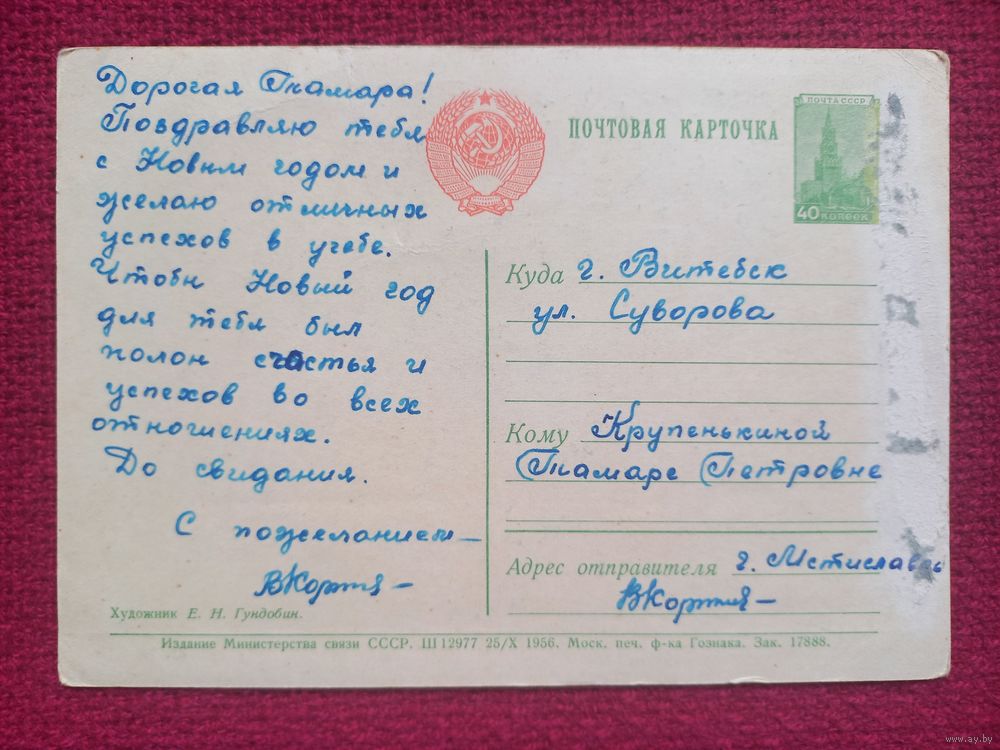 Дорогая Тамара!
Поздравляю тебя
с Новым годом и
желаю отличных
успехов в учебе.
Чтобы Новый год
для тебя был
полон счастья и
успехов во всех
отношениях.
До свидания.
С пожеланием—
Художник Е. Н. Гундобин.
ПОЧТОВАЯ КАРТОЧКА
ПОЧТА СССР
40 КОПЕЕК
Куда г. Витебск
ул. Суворова
Кому Крупенькиной
Тамаре Петровне
Адрес отправителя г. Мстиславль
Издание Министерства связи СССР. Ш 12977 25/X 1956. Моск. печ. ф-ка Гознака. Зак. 17888.
www.ay.by